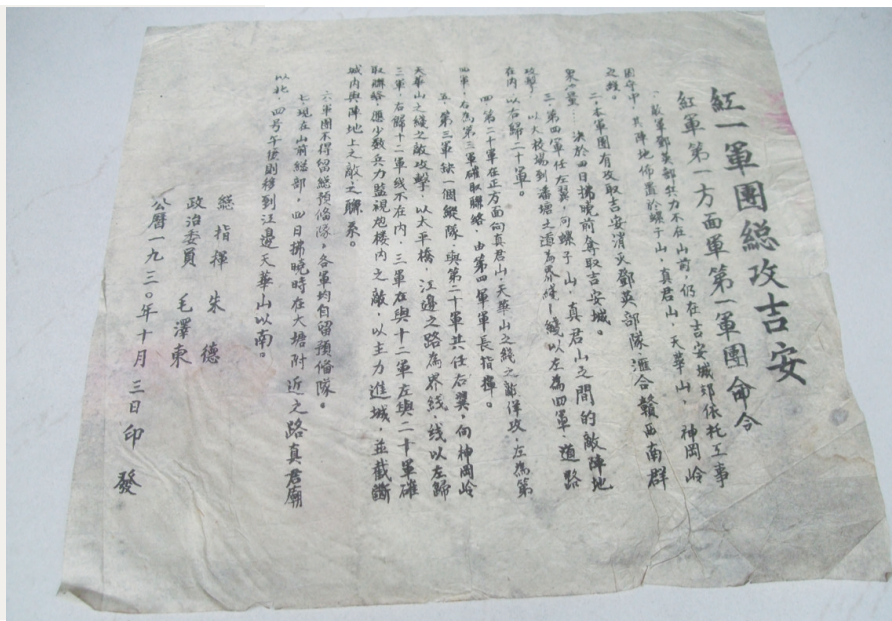 紅一軍團總攻吉安
紅軍第一方面軍第一軍團命令
敵軍鄧英部兵力不在山前，仍在吉安城郊依托工事
固守中，其陣地佈置於螺子山，真君山，天華山，神岡岭
之綫。
二，本軍團有攻取吉安消灭鄧英部隊，滙合贛西南群
眾决於四日拂晓前奪取吉安城。
三，第四軍任左翼，向螺子山，真君山之間的敵陣地
攻擊，以大校場到潘塘之道為界綫，綫以左為四軍，道路
在内，以右歸二十軍。
四，第二十軍在正方面向真君山，天華山之綫之敵佯攻，左為第
四軍，右為第三軍確取聯絡，由第四軍軍長指揮。
五，第三軍缺一個縱隊，與第二十軍共任右翼，向神岡岭
天華山之綫之敵攻擊，以太平橋，江邊之路為界綫，綫以左歸
三軍，右歸十二軍线不在内，三軍在與十二軍左與二十軍確
取聯絡，應少数兵力監視炮楼内之敵，以主力進城，並截斷
城内與陣地上之敵之聯系。
六，軍團不得留總預俻隊，各軍均自留預俻隊。
七，現在山前總部，四日拂晓時在大塘附近之路真君廟
以北，四号午後則移到江邊天華山以南。
總指揮 朱德
政治委員 毛澤東
公曆一九三〇年十月三日印發